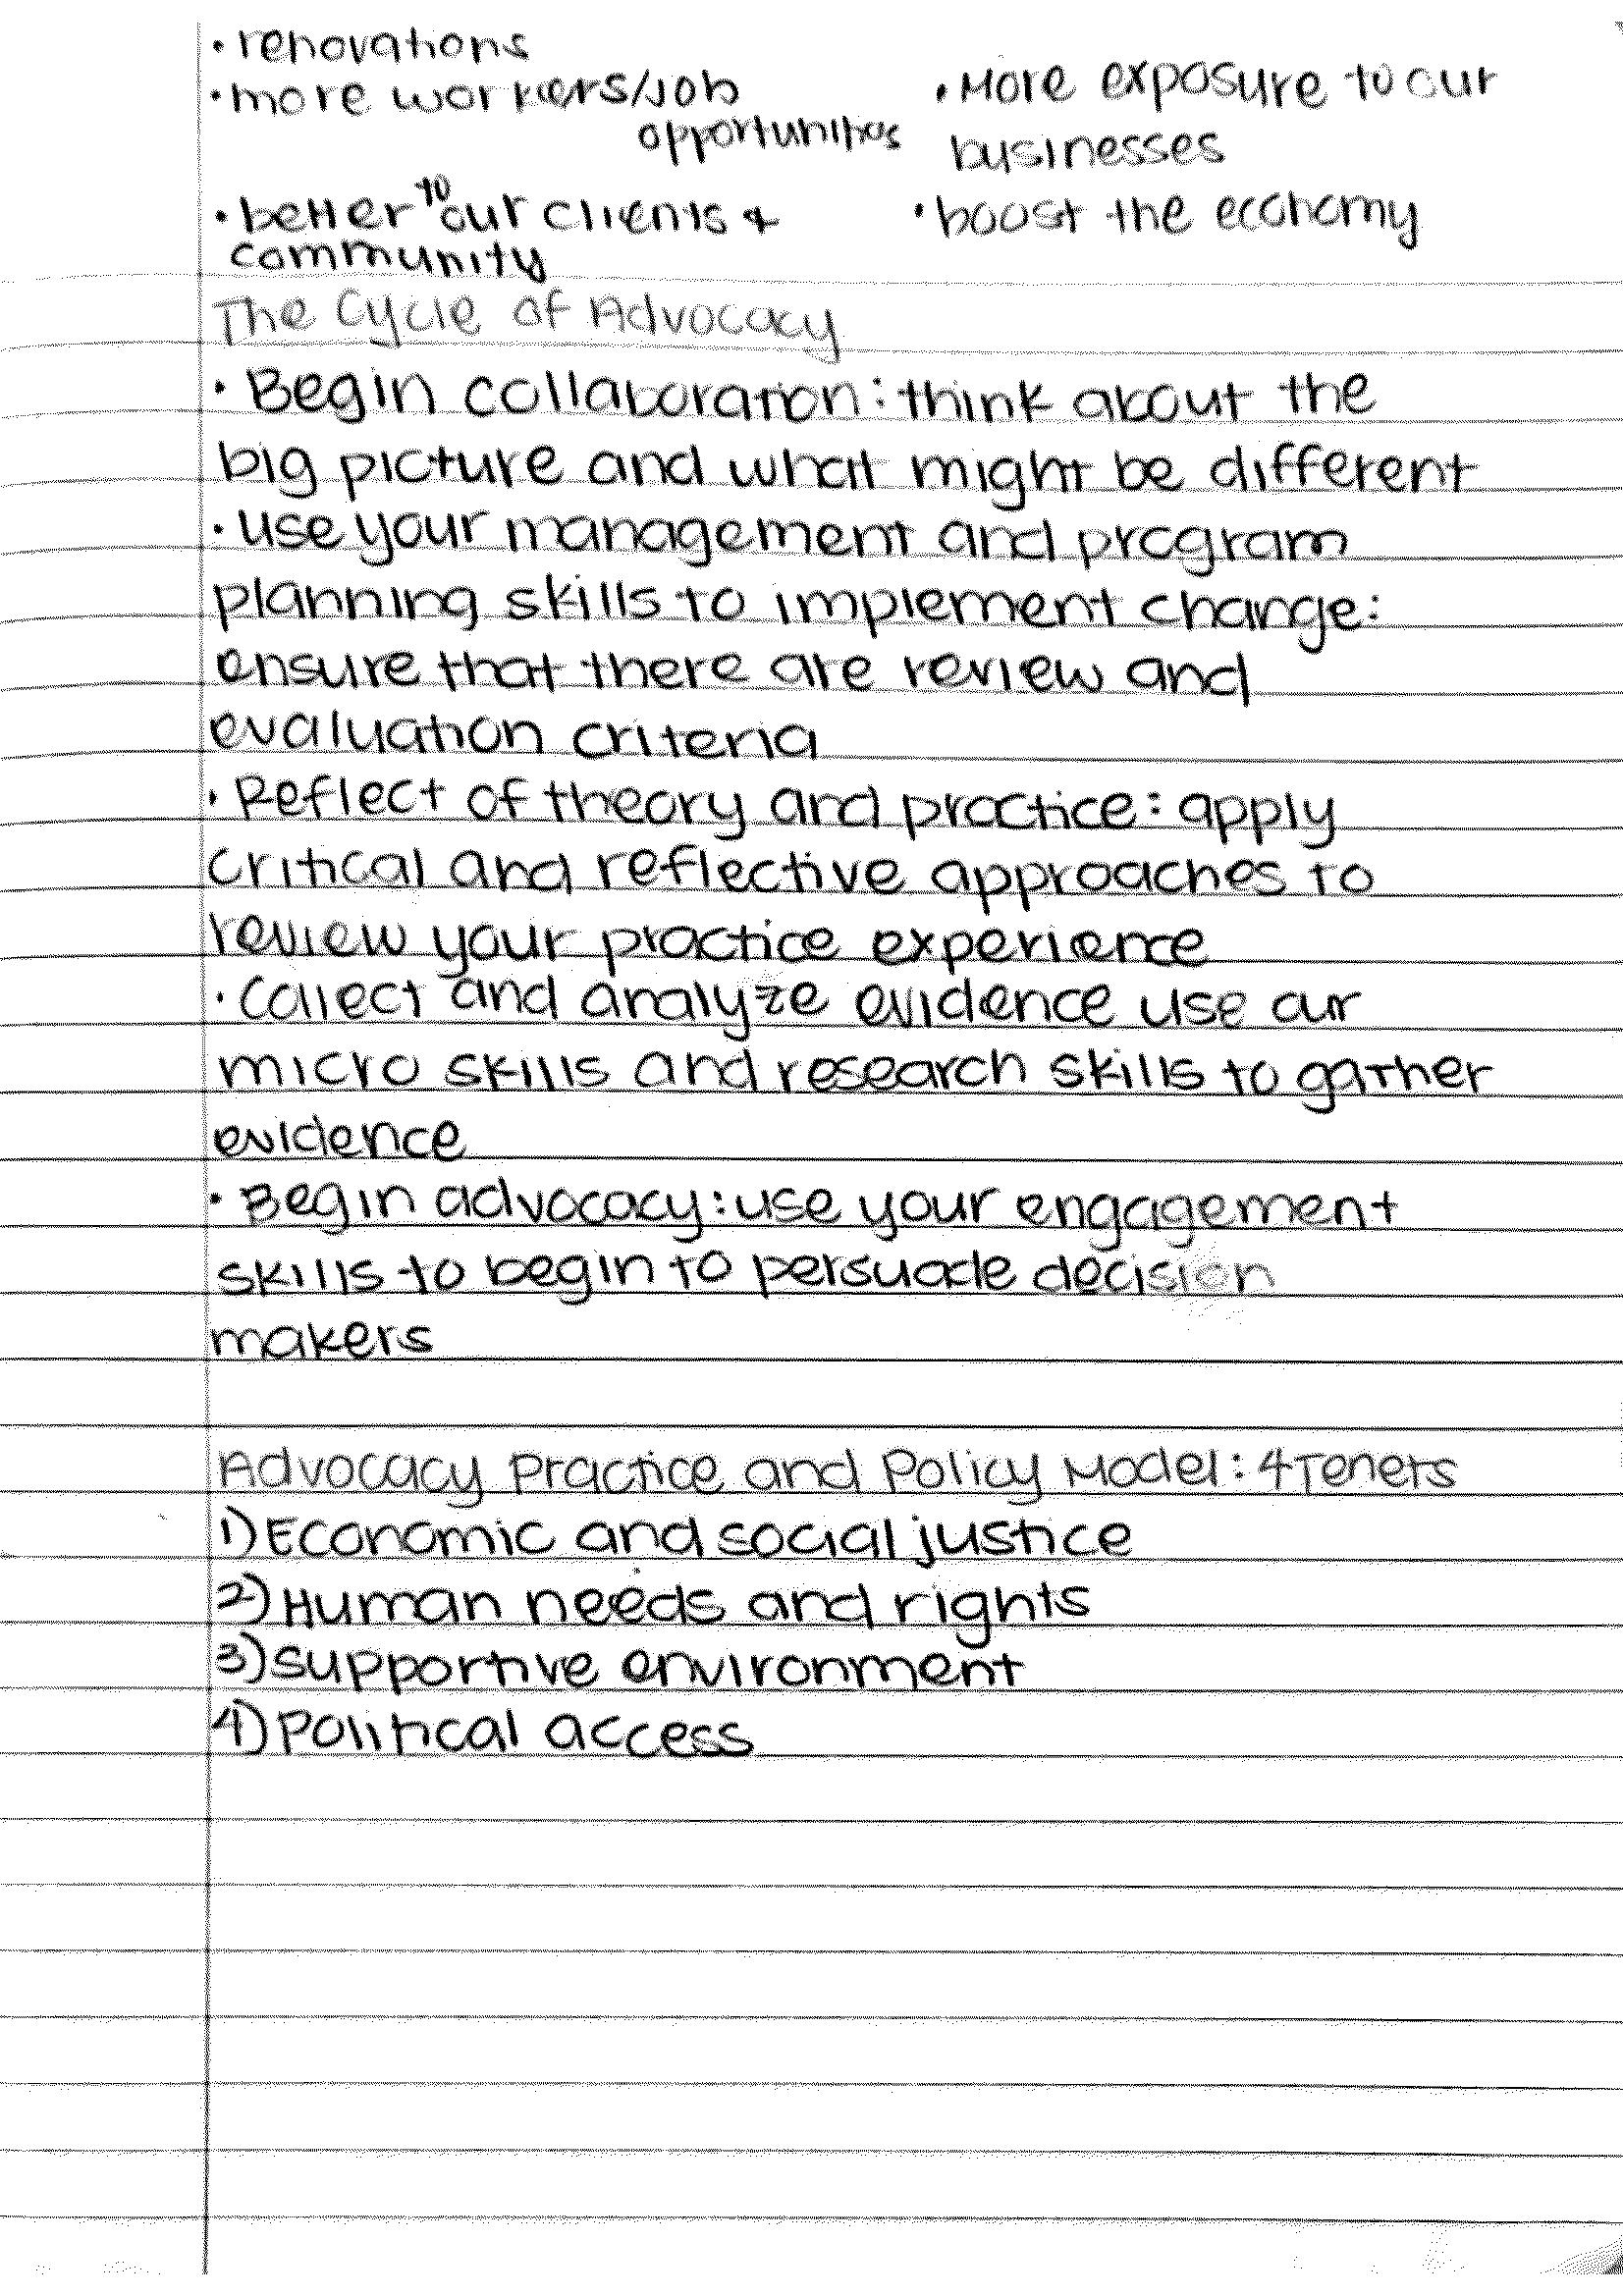 • renovations
• more workers/job
opportunities
• better to our clients +
community
• More exposure to our
businesses
• boost the economy
The Cycle of Advocacy
• Begin collaboration: think about the
big picture and what might be different
• use your management and program
planning skills to implement change:
ensure that there are review and
evaluation criteria
• Reflect of theory and practice: apply
critical and reflective approaches to
review your practice experience
• Collect and analyze evidence use our
micro skills and research skills to gather
evidence
• Begin advocacy: use your engagement
skills to begin to persuade decision
makers
Advocacy Practice and Policy Model: 4 Tenets
1) Economic and social justice
2) Human needs and rights
3) supportive environment
4) Political access